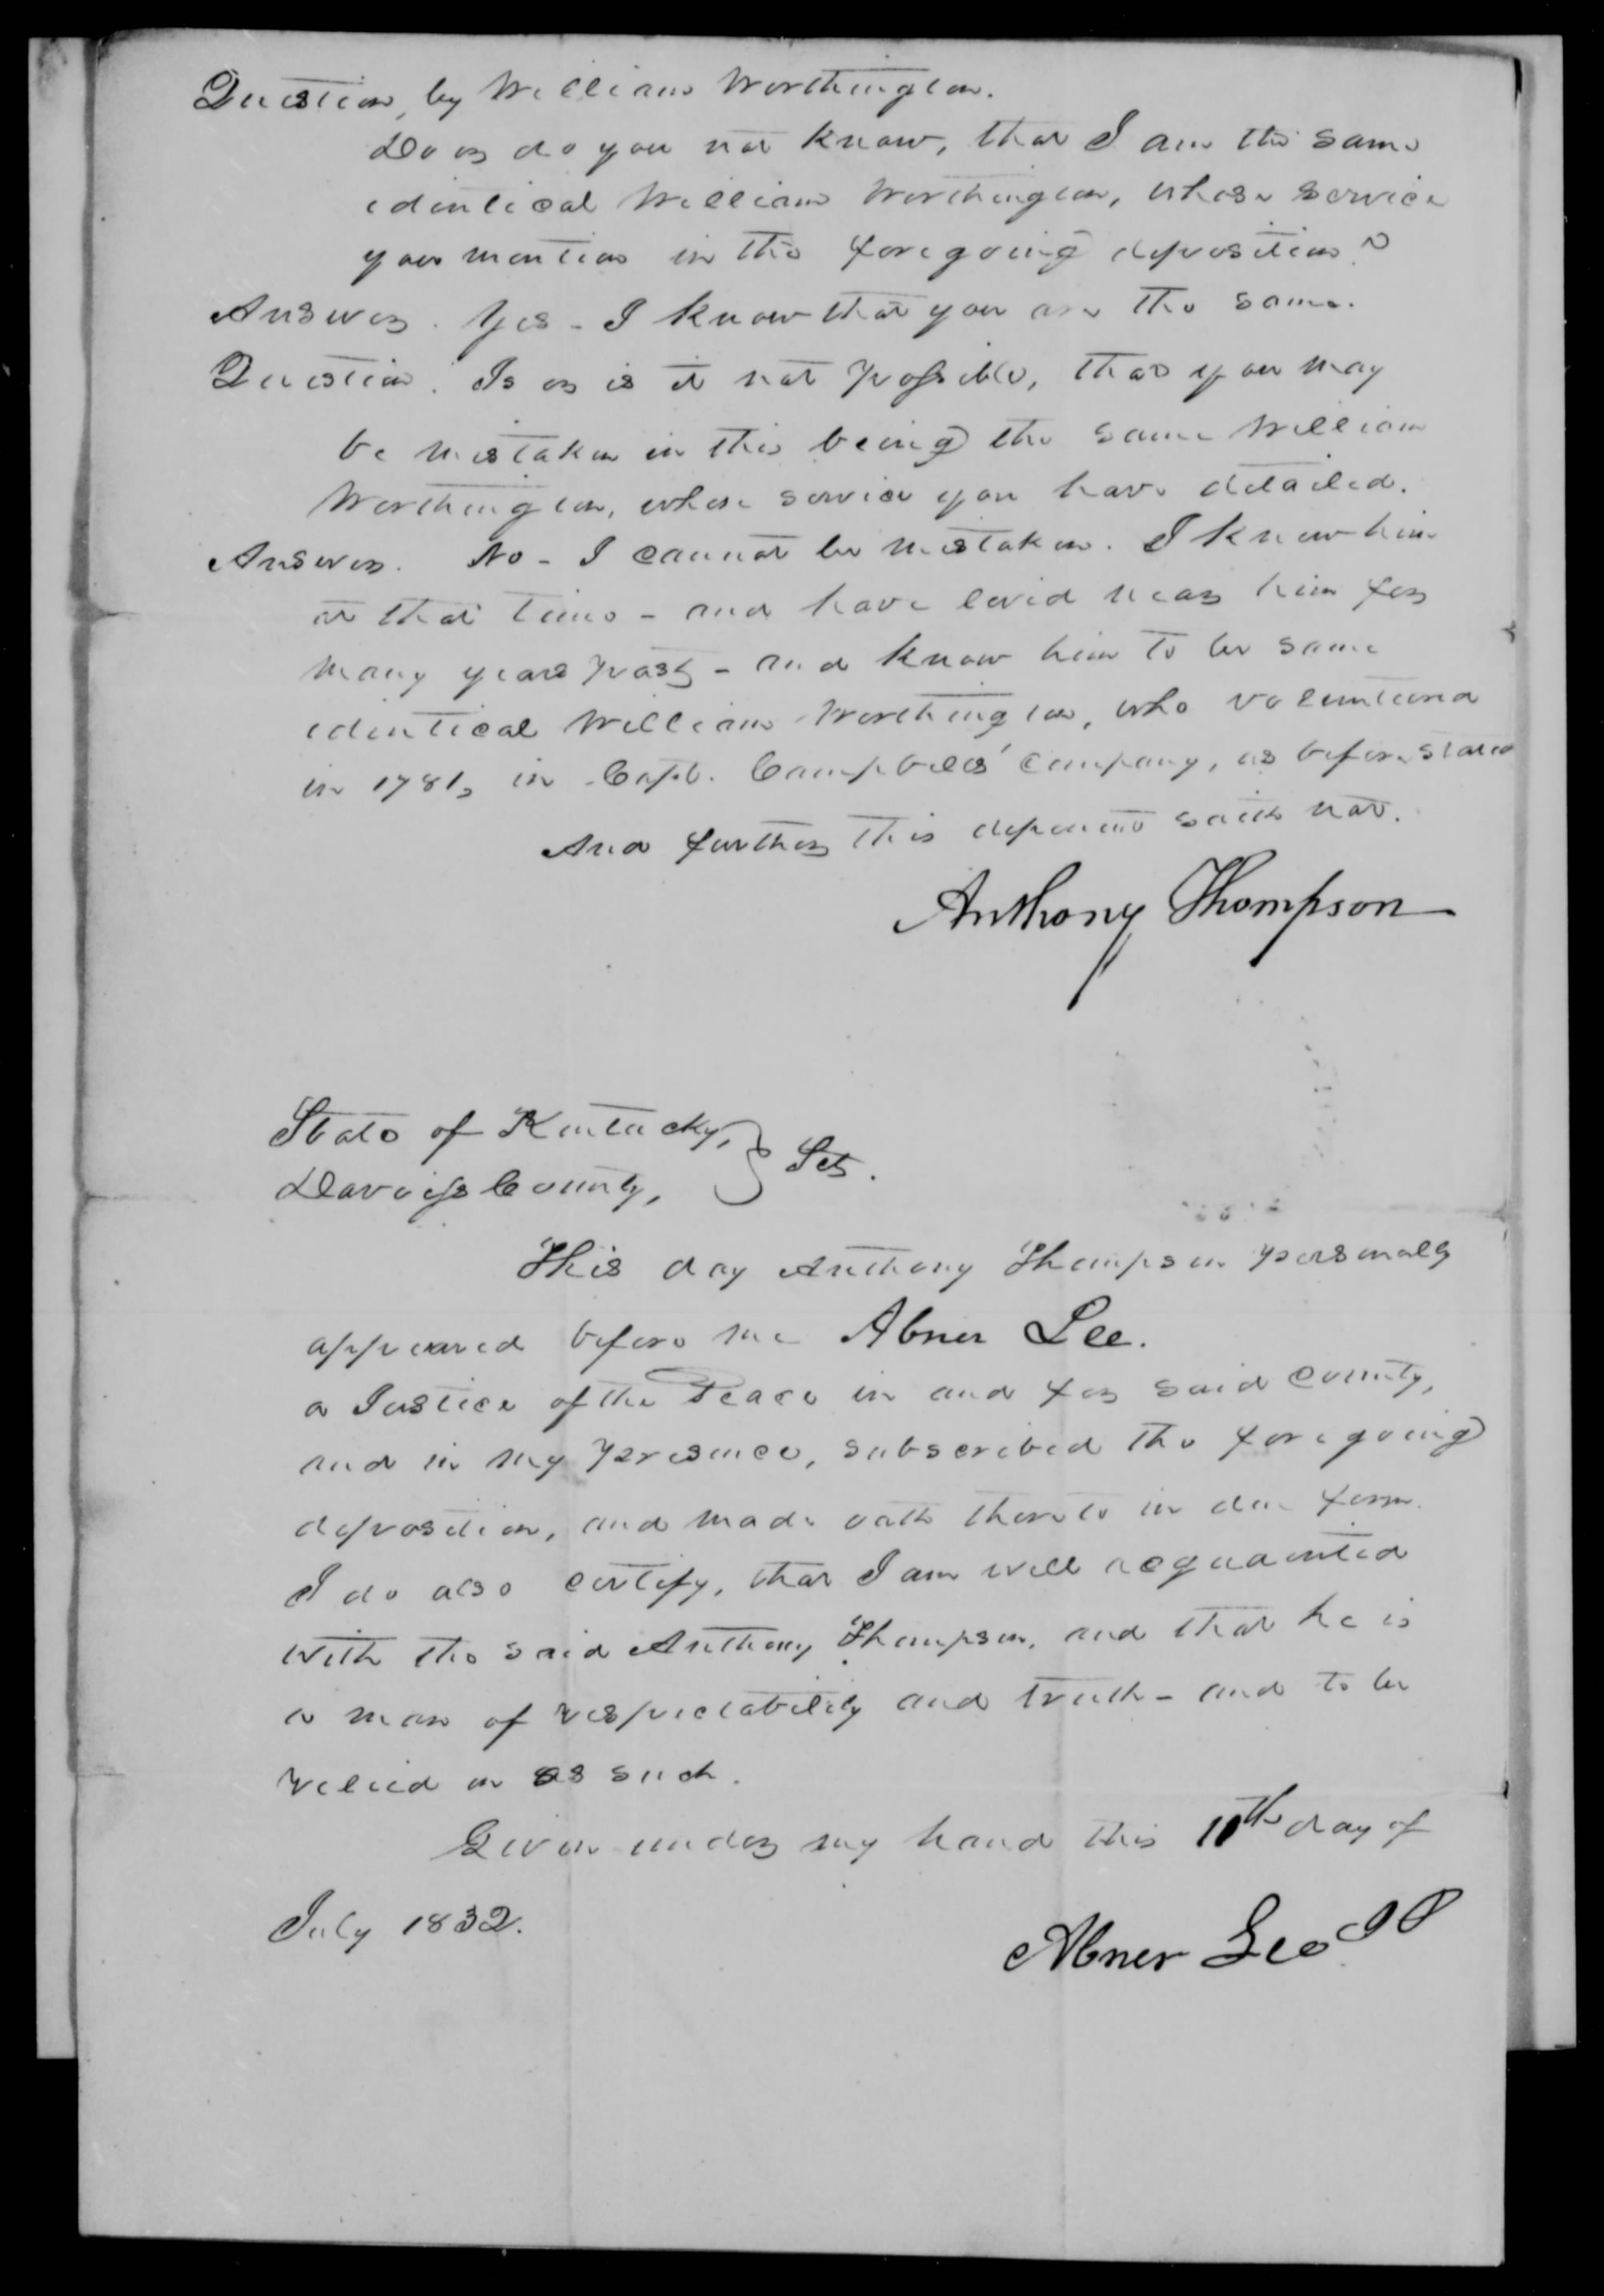 Question, by William Worthington.
Do or do you not know, that I am the same
identical William Worthington, whose service
you mention in the foregoing deposition?
Answer. Yes - I know that you are the same.
Question. Is or is it not possible, that you may
be mistaken in this being the same William
Worthington, whose service you have detailed.
Answer. No - I cannot be mistaken. I knew him
at that time - and have lived near him for
many years past - and know him to be same
identical William Worthington, who volunteered
in 1781, in Capt. Campbells' company, as before stated
And further this deponent saith not.
Anthony Thompson
State of Kentucky,
Daviess County, } Sct.
This day Anthony Thompson personally
appeared before me Abner Lee.
a Justice of the Peace in and for said County,
and in my presence, subscribed the foregoing
deposition, and made oath thereto in due form.
I do also certify, that I am well acquainted
with the said Anthony Thompson, and that he is
a man of respectability and truth - and to be
relied on as such.
Given under my hand this 10th day of
July 1832.
Abner Lee JP